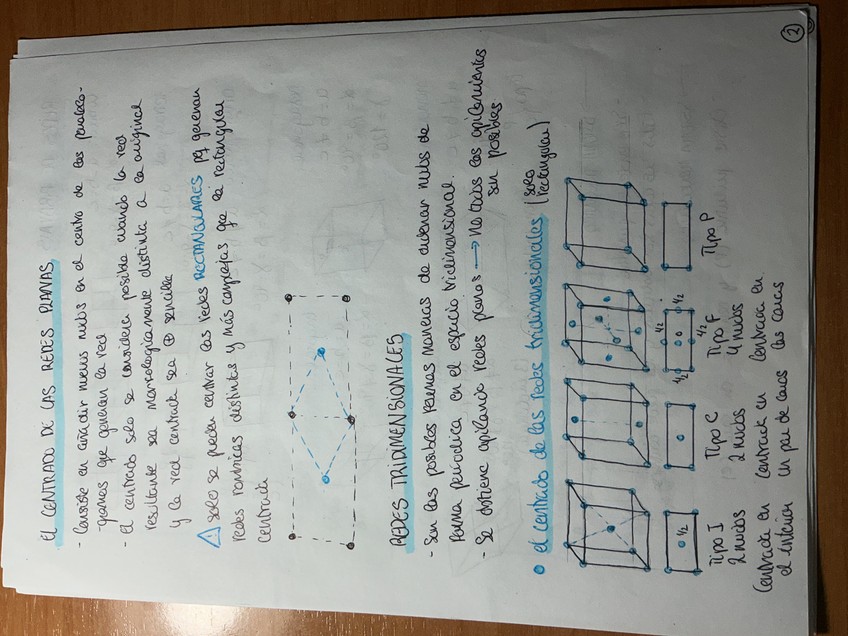 EL CENTRADO DE LAS REDES PLANAS
- Consiste en añadir nuevos nudos en el centro de los paralelo-
-gramos que generan la red
- El centrado solo se considera posible cuando la red
resultante sea morfologicamente distinta a la original
y la red centrada sea ⊕ sencilla
⚠ solo se pueden centrar las redes RECTANGULARES pq generan
redes rómbicas distintas y más complejas que la rectangular
centrada
REDES TRIDIMENSIONALES
- Son las posibles formas maneras de ordenar nudos de
forma periodica en el espacio tridimensional.
- Se obtiene apilando redes planas → No todos los apilamientos
son posibles
• el centrado de las redes tridimensionales (solo
rectangular)
1/2
1/2 1/2
1/2 1/2
Tipo I
2 nudos
Centrada en
el interior
Tipo C
2 nudos
Centrada en
un par de caras
Tipo F
4 nudos
Centrada en
las caras
Tipo P
2